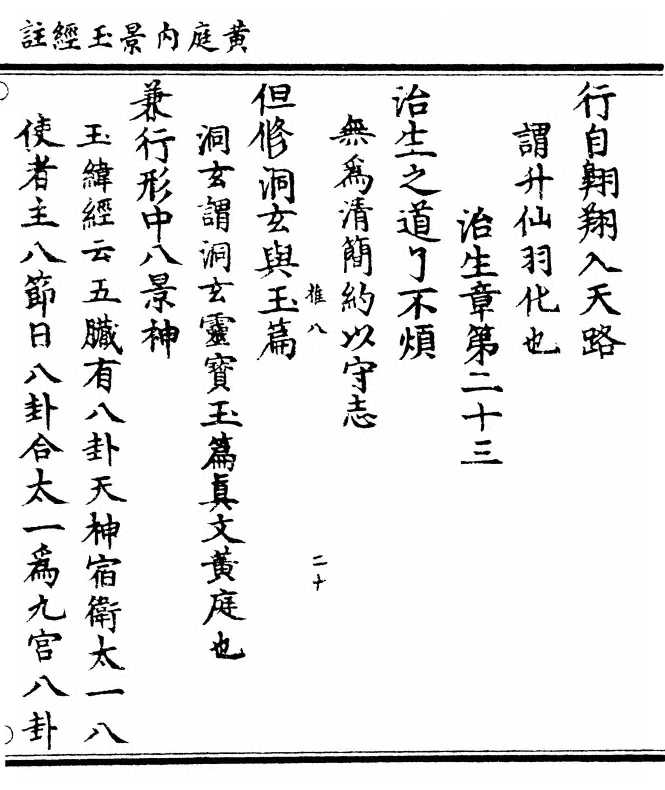 黄庭内景玉經註
行自翺翔入天路
謂升仙羽化也
治生章第二十三
治生之道了不煩
無爲清簡約以守志
推八
二十
但修洞玄與玉篇
洞玄謂洞玄靈寶玉篇眞文黄庭也
兼行形中八景神
玉緯經云五臟有八卦天神宿衛太一八
使者主八節日八卦合太一爲九宫八卦